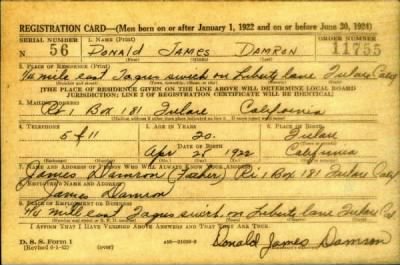 REGISTRATION CARD—(Men born on or after January 1, 1922 and on or before June 30, 1924)
SERIAL NUMBER 1. NAME (Print) ORDER NUMBER
N 56 DONALD JAMES DAMRON 11755
(First) (Middle) (Last)
2. PLACE OF RESIDENCE (Print)
1/4 mile east Tagus switch on Liberty lane Tulare Calif
[THE PLACE OF RESIDENCE GIVEN ON THE LINE ABOVE WILL DETERMINE LOCAL BOARD
JURISDICTION; LINE 2 OF REGISTRATION CERTIFICATE WILL BE IDENTICAL]
3. MAILING ADDRESS
Rt 1 Box 181 Tulare California
4. TELEPHONE 5. AGE IN YEARS 6. PLACE OF BIRTH
5 of 11 20 Tulare
DATE OF BIRTH
Apr 25 1922 California
7. NAME AND ADDRESS OF PERSON WHO WILL ALWAYS KNOW YOUR ADDRESS
James Damron (Father) Rt 1 Box 181 Tulare Calif
8. EMPLOYER'S NAME AND ADDRESS
James Damron
9. PLACE OF EMPLOYMENT OR BUSINESS
1/4 mile east Tagus switch on Liberty lane Tulare Cal
I AFFIRM THAT I HAVE VERIFIED ABOVE ANSWERS AND THAT THEY ARE TRUE.
D. S. S. Form 1
(Revised 6-1-42)
Donald James Damron